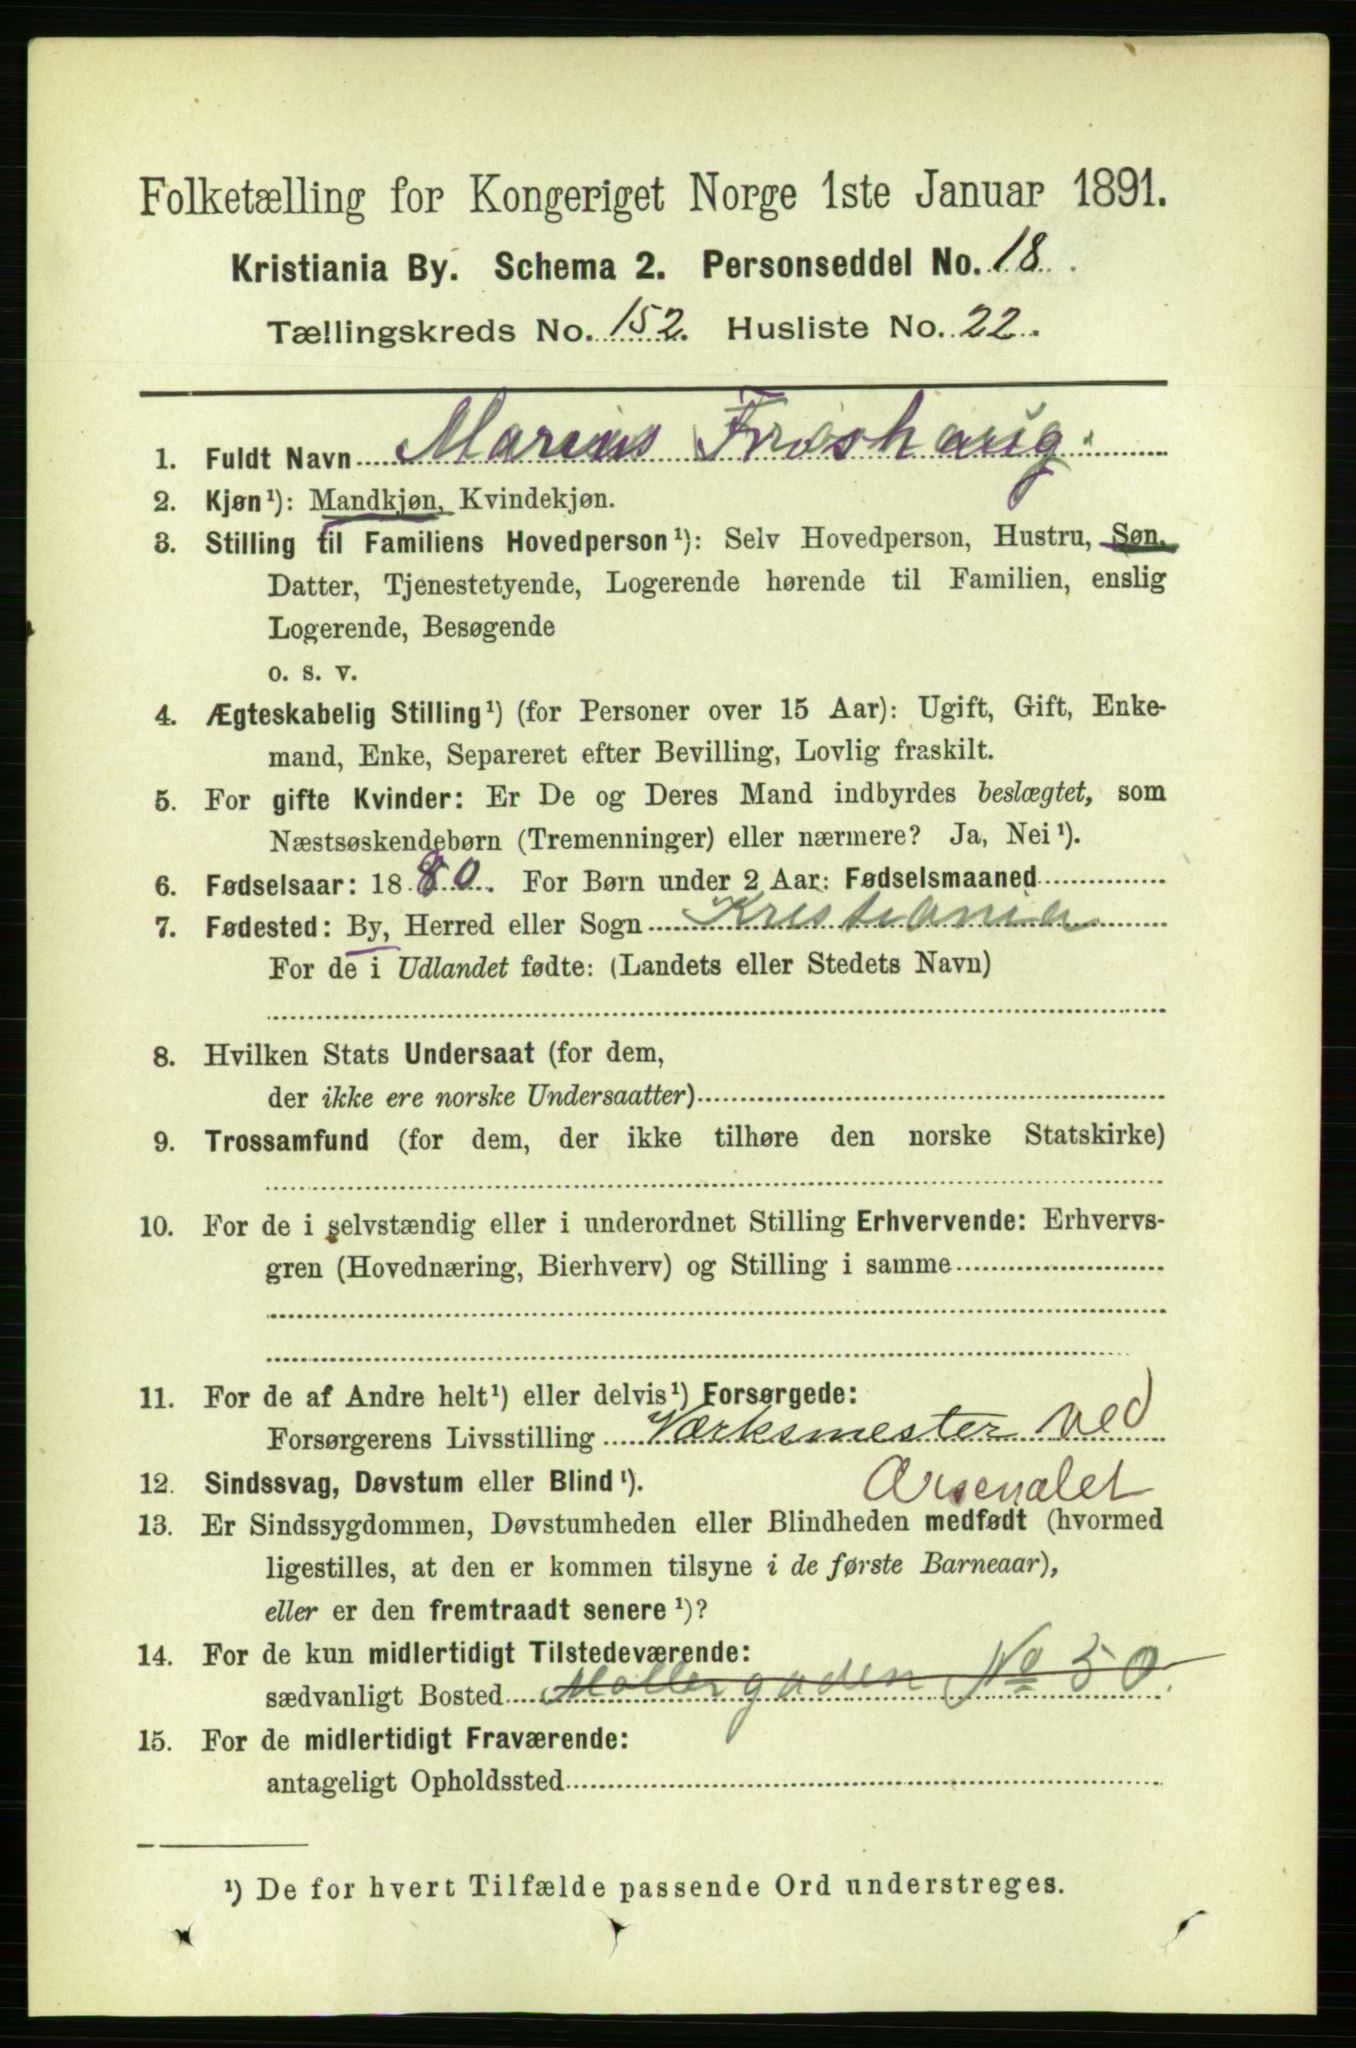 Folketælling for Kongeriget Norge 1ste Januar 1891.
Kristiania By. Schema 2. Personseddel No. 18.
Tællingskreds No. 152. Husliste No. 22.
1. Fuldt Navn Marius Frøshaug.
2. Kjøn¹): Mandkjøn, Kvindekjøn.
3. Stilling til Familiens Hovedperson¹): Selv Hovedperson, Hustru, Søn,
Datter, Tjenestetyende, Logerende hørende til Familien, enslig
Logerende, Besøgende
o. s. v.
4. Ægteskabelig Stilling¹) (for Personer over 15 Aar): Ugift, Gift, Enke-
mand, Enke, Separeret efter Bevilling, Lovlig fraskilt.
5. For gifte Kvinder: Er De og Deres Mand indbyrdes beslægtet, som
Næstsøskendebørn (Tremenninger) eller nærmere? Ja, Nei¹).
6. Fødselsaar: 1880. For Børn under 2 Aar: Fødselsmaaned
7. Fødested: By, Herred eller Sogn Kristiania
For de i Udlandet fødte: (Landets eller Stedets Navn)
8. Hvilken Stats Undersaat (for dem,
der ikke ere norske Undersaatter)
9. Trossamfund (for dem, der ikke tilhøre den norske Statskirke)
10. For de i selvstændig eller i underordnet Stilling Erhvervende: Erhvervs-
gren (Hovednæring, Bierhverv) og Stilling i samme
11. For de af Andre helt¹) eller delvis¹) Forsørgede:
Forsørgerens Livsstilling Værksmester ved
Arsenalet
12. Sindssvag, Døvstum eller Blind¹).
13. Er Sindssygdommen, Døvstumheden eller Blindheden medfødt (hvormed
ligestilles, at den er kommen tilsyne i de første Barneaar),
eller er den fremtraadt senere¹)?
14. For de kun midlertidigt Tilstedeværende:
sædvanligt Bosted Møllergaden No 50.
15. For de midlertidigt Fraværende:
antageligt Opholdssted
¹) De for hvert Tilfælde passende Ord understreges.